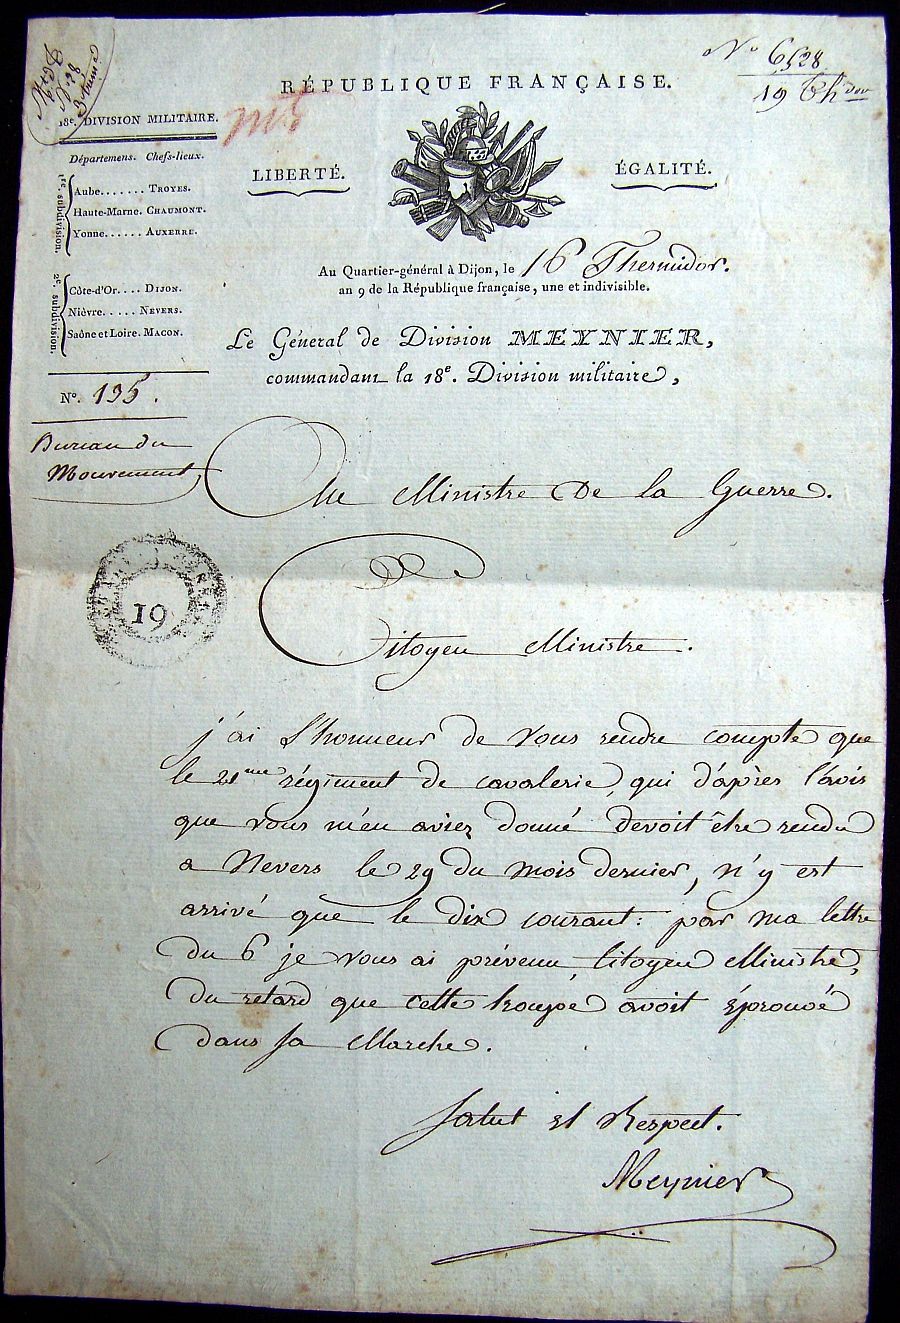 Nº 6528
19 Thdor
RÉPUBLIQUE FRANÇAISE.
18e. DIVISION MILITAIRE.
Départemens. Chefs-lieux.
1re. subdivision.
Aube....... TROYES.
Haute-Marne. CHAUMONT.
Yonne...... AUXERRE.
2e. subdivision.
Côte-d'Or.... DIJON.
Nièvre..... NEVERS.
Saône et Loire. MACON.
LIBERTÉ.
ÉGALITÉ.
Au Quartier-général à Dijon, le 16 Thermidor.
an 9 de la République française, une et indivisible.
Le Général de Division MEYNIER,
commandant la 18e. Division militaire,
Nº. 135.
Bureau du
Mouvement
Au Ministre De la Guerre.
19
Citoyen Ministre.
j'ai l'honneur de vous rendre compte que
le 21me régiment de cavalerie, qui d'après l'avis
que vous m'en aviez donné devoit être rendu
a Nevers le 29 du mois dernier, n'y est
arrivé que le dix courant: par ma lettre
du 6 je vous ai prévenu, Citoyen Ministre,
du retard que cette troupe avoit éprouvé
dans sa Marche.
Salut et Respect.
Meynier